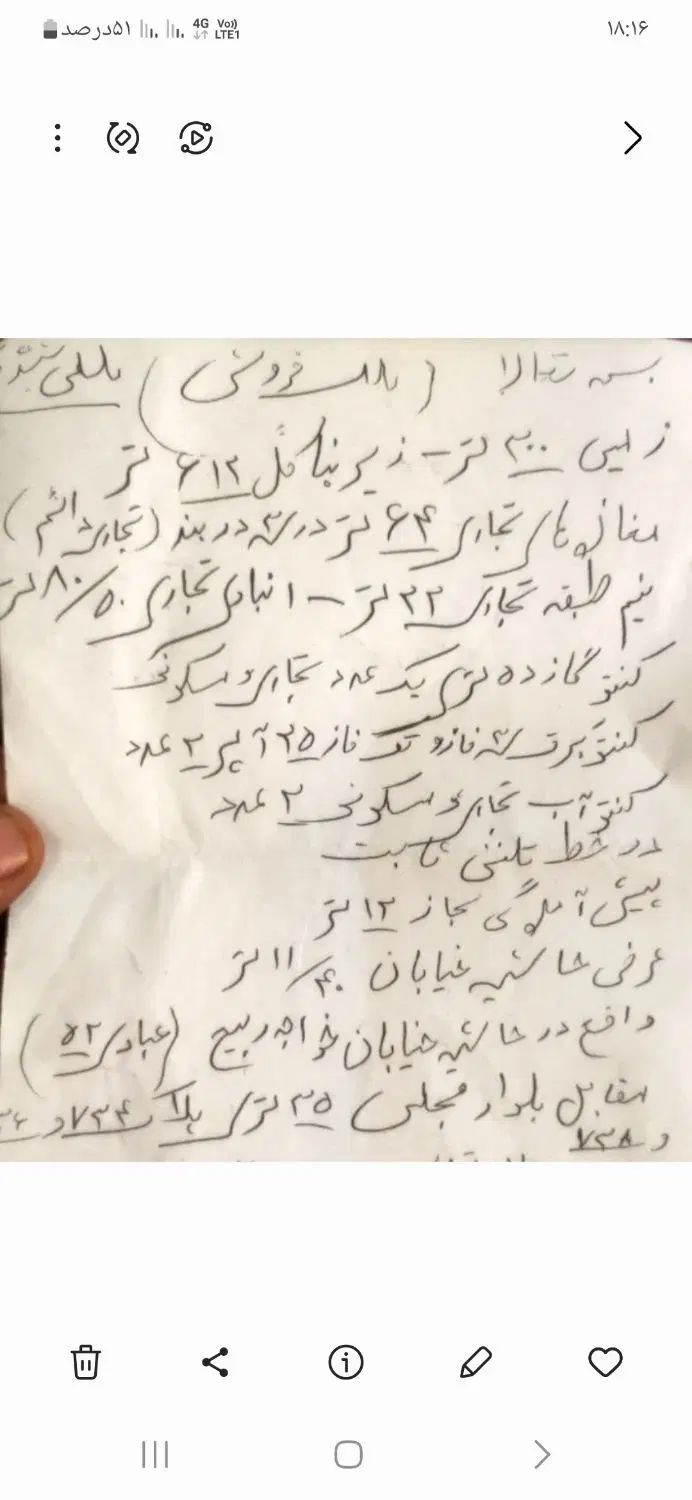 ۱۸:۱۶
۵۱درصد 4G Vo)) LTE1
بسمه تعالا (ملک فروشی) ملکی ششد
زمین ۳۰۰ متر - زیر بنا کل ۶۱۲ متر
مغازه های تجاری ۶۴ متر در سه دربند (تجاری دائم)
نیم طبقه تجاری ۳۲ متر - انباری تجاری ۸۰/۵۰ متر
کنتور گاز ده متری یک عدد تجاری و سکونی
کنتور برق سه فاز و تک فاز ۲۵ آمپر ۲ عدد
کنتور آب تجاری و سکونی ۲ عدد
دو خط تلفن ثابت
پیش آمدگی مجاز ۱۲ متر
عرض حاشیه خیابان ۱۱/۴۰ متر
واقع در حاشیه خیابان خواجه ربیع (عبادی ۵۲)
مقابل بلوار مجلسی ۳۵ متری پلاک ۷۳۴ و
و ۷۳۸